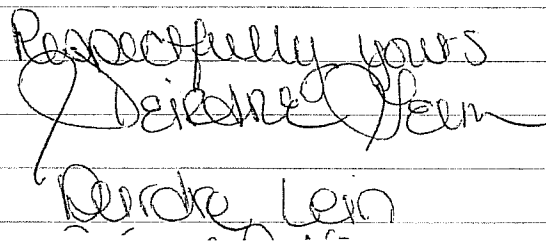 Respectfully yours
Deirdre
Deirdre Lein